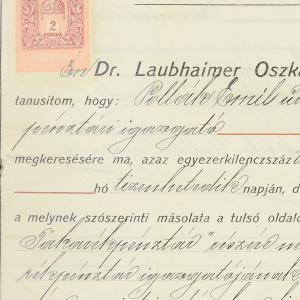 2
KORONA
Én Dr. Laubhaimer Oszká
tanusítom, hogy: Pollák Emil ú
pénztári igazgató
megkeresésére ma, azaz egyezerkilenczszázt
hó tizenhetedik napján, d
a melynek szószerinti másolata a tulsó oldalo
Takarékpénztár" részvé
rékpénztár igazgatójának